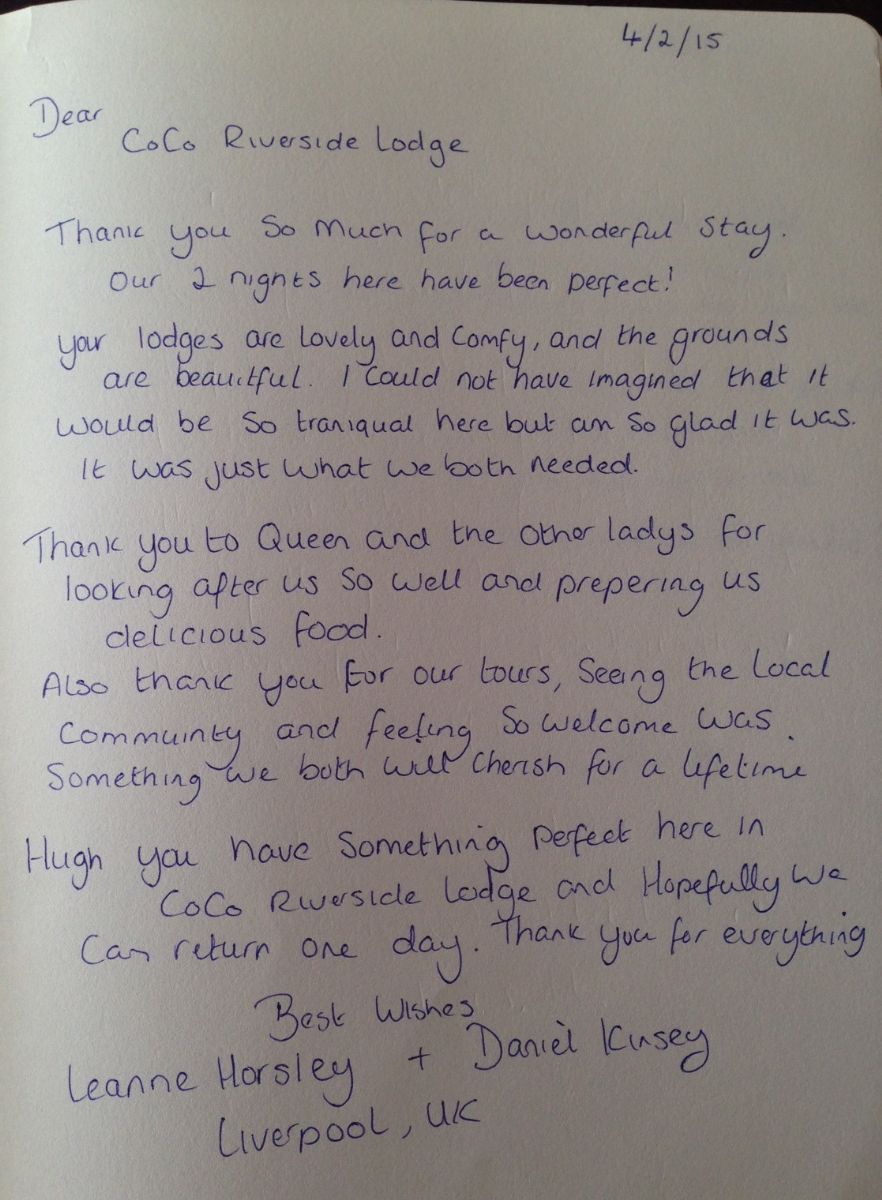 4/2/15
Dear
CoCo Riverside Lodge
Thank you so much for a wonderful stay.
Our 2 nights here have been perfect!
your lodges are lovely and comfy, and the grounds
are beauitful. I could not have imagined that it
would be so traniqual here but am so glad it was.
It was just what we both needed.
Thank you to Queen and the other ladys for
looking after us so well and prepering us
delicious food.
Also thank you for our tours, seeing the local
commuinty and feeling so welcome was
something we both will cherish for a lifetime
Hugh you have something perfect here in
CoCo Riverside Lodge and Hopefully we
can return one day. Thank you for everything
Best Wishes
Leanne Horsley + Daniel Kinsey
Liverpool, UK